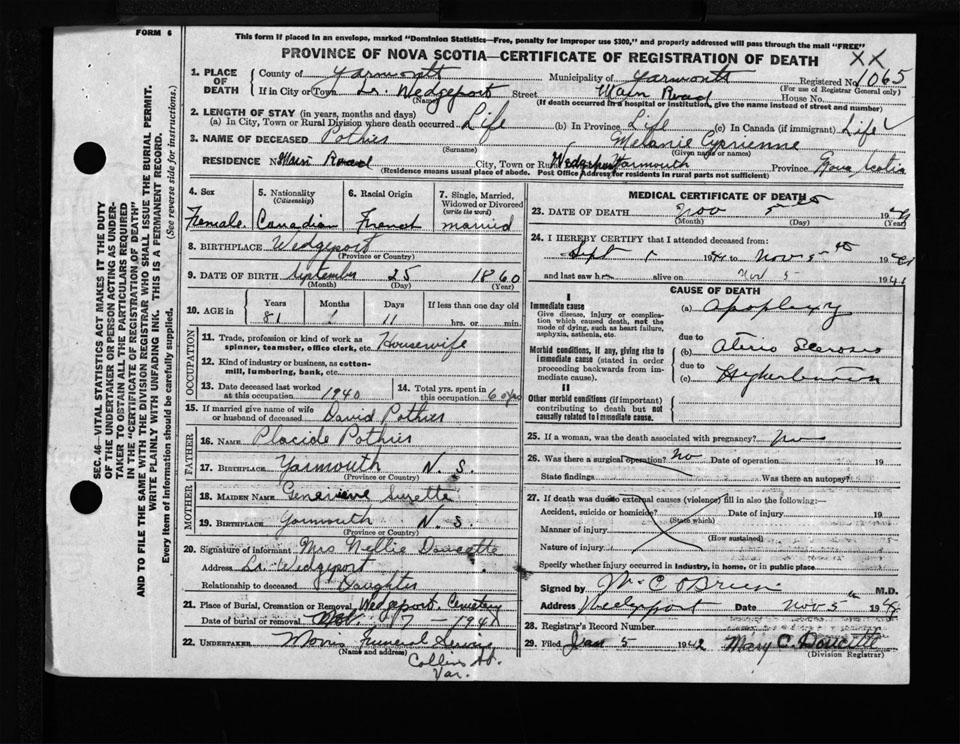 FORM 6
This form if placed in an envelope, marked "Dominion Statistics—Free, penalty for improper use $300," and properly addressed will pass through the mail "FREE"
PROVINCE OF NOVA SCOTIA—CERTIFICATE OF REGISTRATION OF DEATH
XX
1. PLACE OF DEATH
County of Yarmouth Municipality of Yarmouth Registered No 1065
(For use of Registrar General only)
If in City or Town Lr. Wedgeport Street Main Road House No.
(Name) (If death occurred in a hospital or institution, give the name instead of street and number)
2. LENGTH OF STAY (in years, months and days)
(a) In City, Town or Rural Division where death occurred Life (b) In Province Life (c) In Canada (if immigrant) Life
3. NAME OF DECEASED Pothier Melanie Cyprienne
(Surname) (Given name or names)
RESIDENCE No Main Road City, Town or Rural Wedgeport Yarmouth Province Nova Scotia
(Residence means usual place of abode. Post Office Address for residents in rural parts not sufficient)
4. Sex 5. Nationality 6. Racial Origin 7. Single, Married, Widowed or Divorced
(Citizenship) (write the word)
Female Canadian French married
8. BIRTHPLACE Wedgeport
(Province or Country)
9. DATE OF BIRTH September 25 1860
(Month) (Day) (Year)
10. AGE in Years Months Days If less than one day old
81 1 11 hrs. or min.
OCCUPATION
11. Trade, profession or kind of work as spinner, teamster, office clerk, etc. Housewife
12. Kind of industry or business, as cotton-mill, lumbering, bank, etc.
13. Date deceased last worked at this occupation 1940
14. Total yrs. spent in this occupation 60 yrs
15. If married give name of wife or husband of deceased David Pothier
FATHER
16. NAME Placide Pothier
17. BIRTHPLACE Yarmouth N. S.
(Province or Country)
MOTHER
18. MAIDEN NAME Genevieve Surette
19. BIRTHPLACE Yarmouth N. S.
(Province or Country)
20. Signature of informant Mrs Nellie Doucette
Address Lr. Wedgeport
Relationship to deceased Daughter
21. Place of Burial, Cremation or Removal Wedgeport Cemetery
Date of burial or removal Nov. 7 - 1941
22. UNDERTAKER Morris Funeral Service
(Name and address)
Collins St.
Yar.
MEDICAL CERTIFICATE OF DEATH
23. DATE OF DEATH Nov 5th 1941
(Month) (Day) (Year)
24. I HEREBY CERTIFY that I attended deceased from:
Sept 1 1941 to Nov 5th 1941
and last saw h alive on Nov 5 1941
CAUSE OF DEATH
I
Immediate cause
Give disease, injury or complication which caused death, not the mode of dying, such as heart failure, asphyxia, asthenia, etc.
(a) Apoplexy
due to
Morbid conditions, if any, giving rise to immediate cause (stated in order proceeding backwards from immediate cause).
(b)
due to
(c)
II
Other morbid conditions (if important) contributing to death but not causally related to immediate cause.
25. If a woman, was the death associated with pregnancy? No
26. Was there a surgical operation? No Date of operation 19
State findings Was there an autopsy?
27. If death was due to external causes (violence) fill in also the following:
Accident, suicide or homicide? Date of injury 19
(State which)
Manner of injury
(How sustained)
Nature of injury
Specify whether injury occurred in Industry, in home, or in public place
Signed by M C O'Brien M.D.
Address Wedgeport Date Nov 5 1941
28. Registrar's Record Number
29. Filed Jan 5 1942 Mary C. Doucette
(Division Registrar)
SEC. 46—VITAL STATISTICS ACT MAKES IT THE DUTY
OF THE UNDERTAKER OR PERSON ACTING AS UNDER-
TAKER TO OBTAIN ALL THE PARTICULARS REQUIRED
IN THE "CERTIFICATE OF REGISTRATION OF DEATH"
AND TO FILE THE SAME WITH THE DIVISION REGISTRAR WHO SHALL ISSUE THE BURIAL PERMIT.
WRITE PLAINLY WITH UNFADING INK. THIS IS A PERMANENT RECORD.
Every item of information should be carefully supplied. (See reverse side for instructions.)